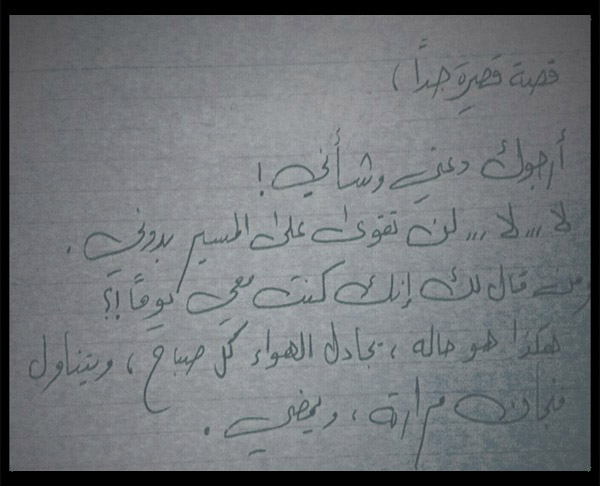 قصة قصيرة جداً )
أرجوك دعني وشأني !
لا ,,, لا ,,, لن تقوى على المسير بدوني .
ومن قال لك إنك كنت معي يوماً !؟
هكذا هو حاله ، يجادل الهواء كل صباح ، ويتناول
فنجان مرارته ، ويمضي .